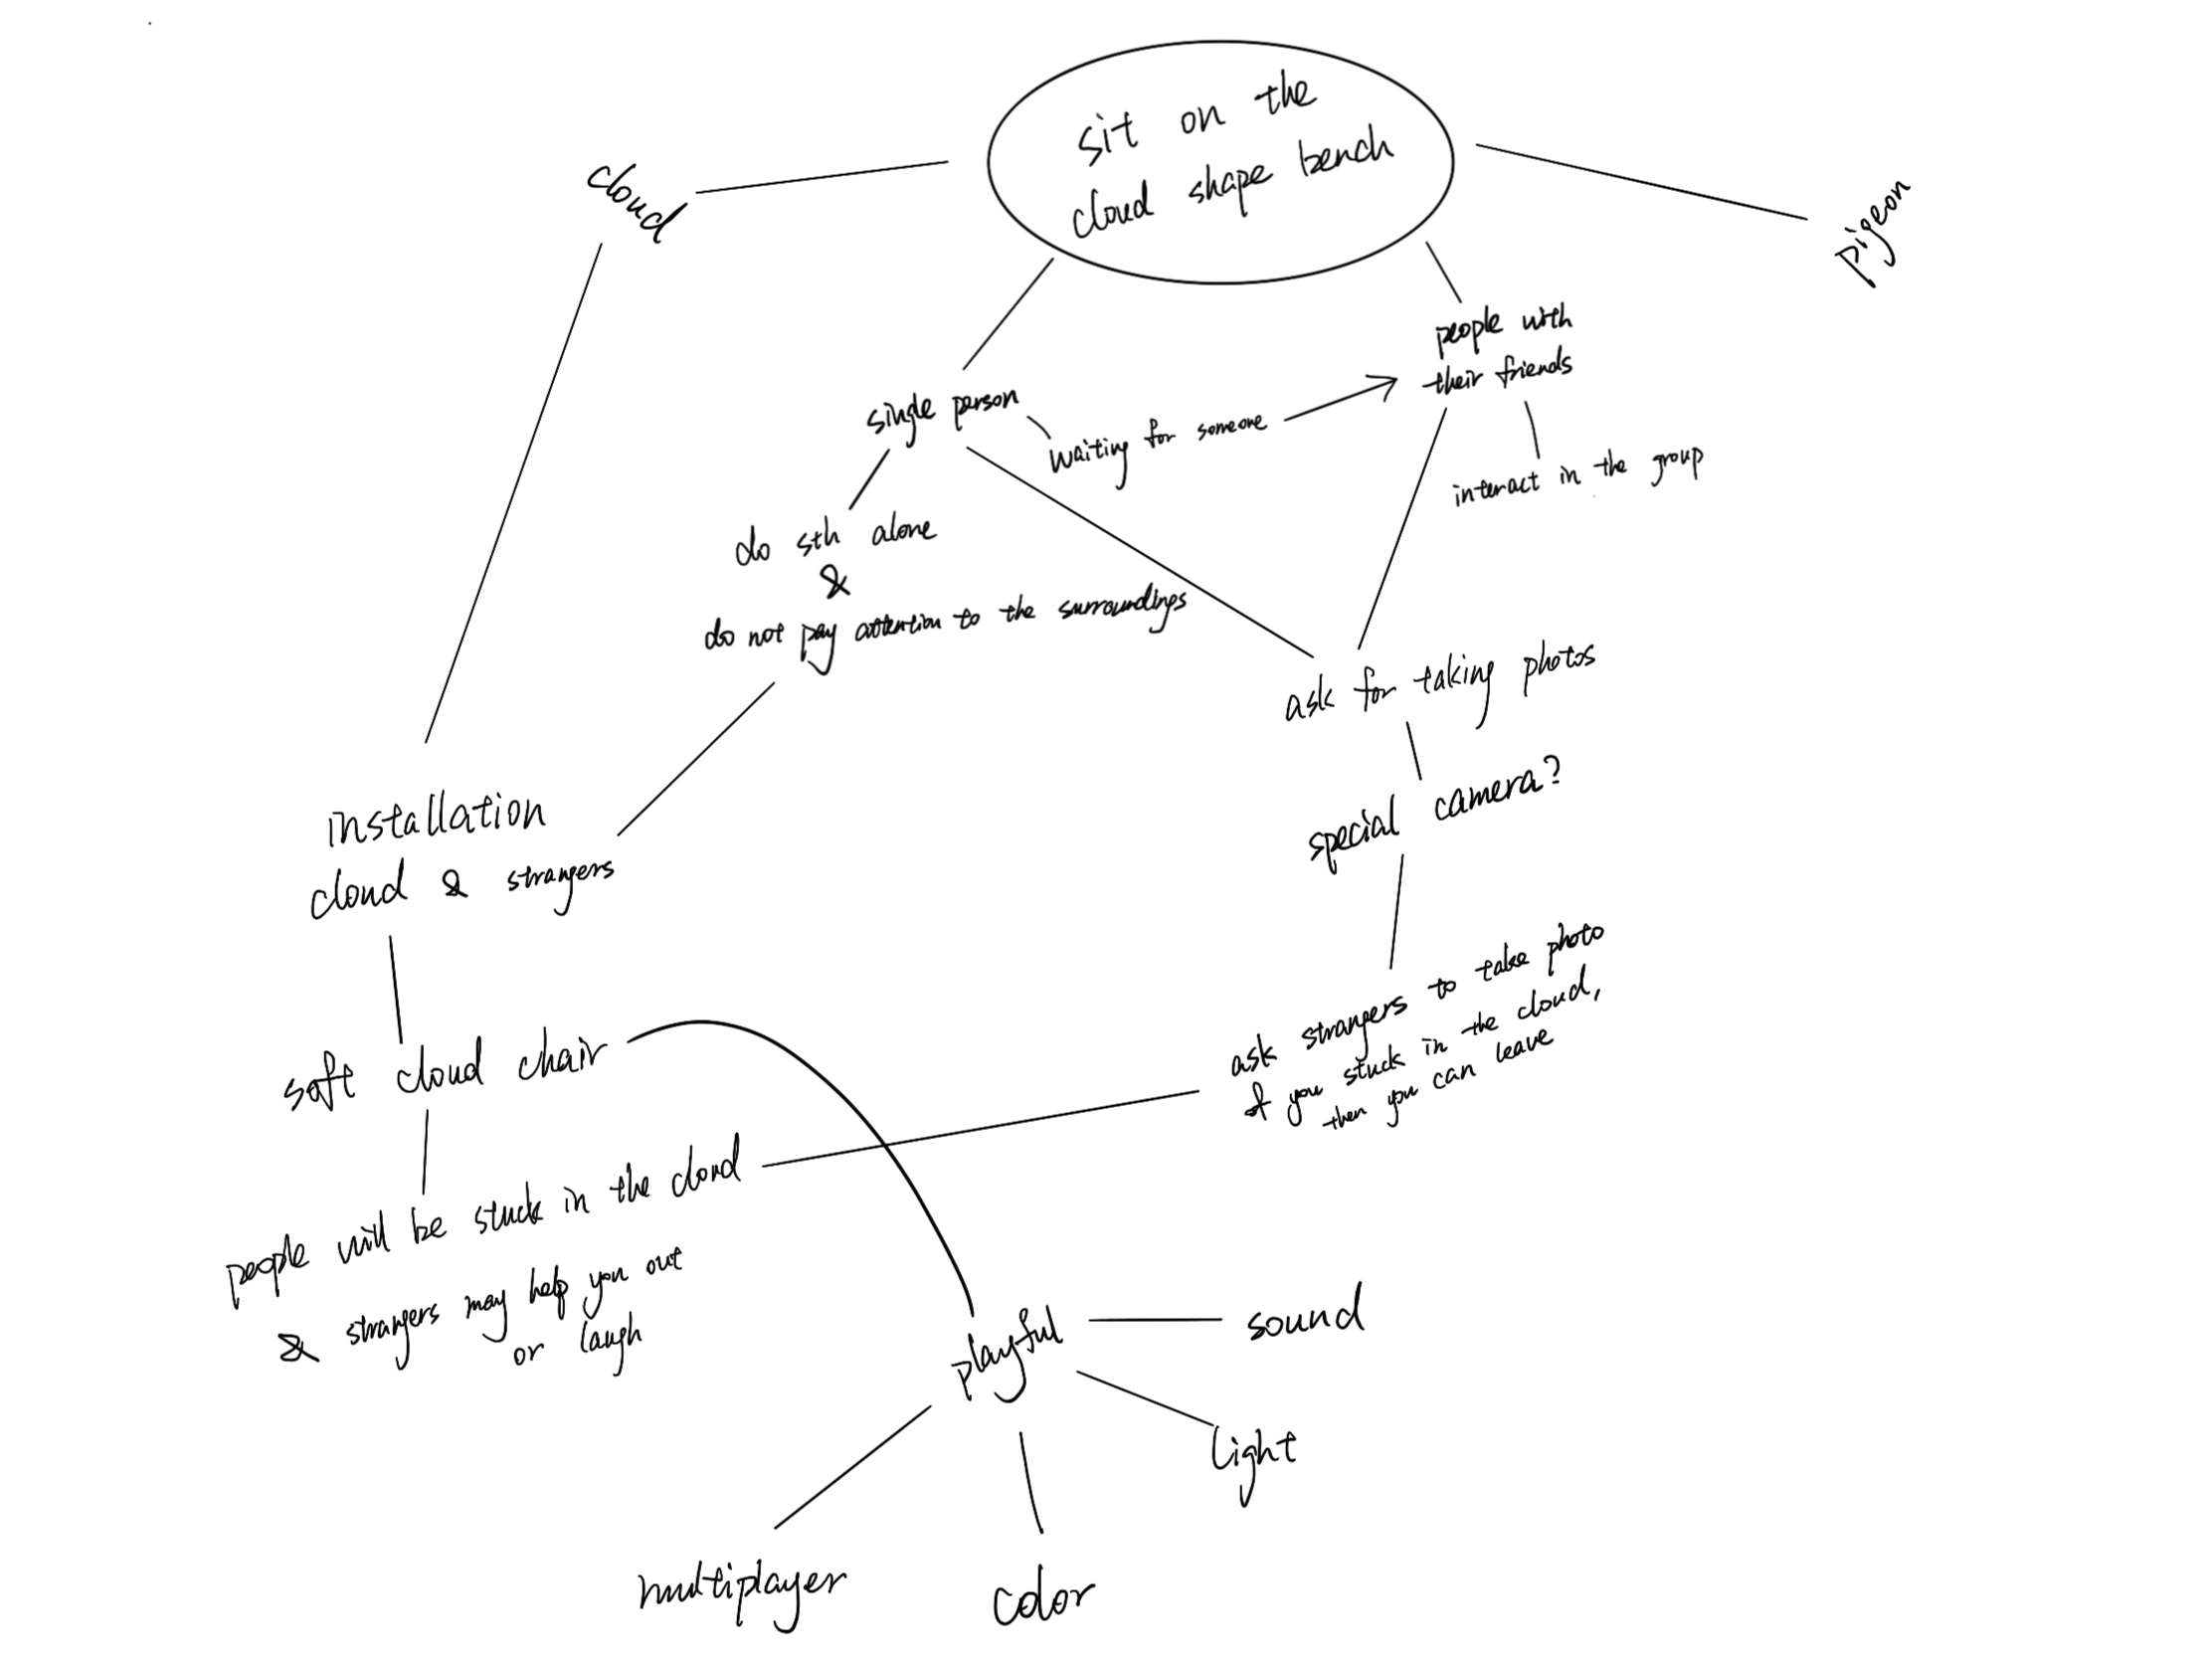 sit on the
cloud shape bench
cloud
pigeon
people with
their friends
single person
waiting for someone
interact in the group
do sth alone
&
do not pay attention to the surroundings
ask for taking photos
special camera?
installation
cloud & strangers
ask strangers to take photo
if you stuck in the cloud,
then you can leave
soft cloud chair
people will be stuck in the cloud
& strangers may help you out
or laugh
playful
sound
light
multiplayer
color